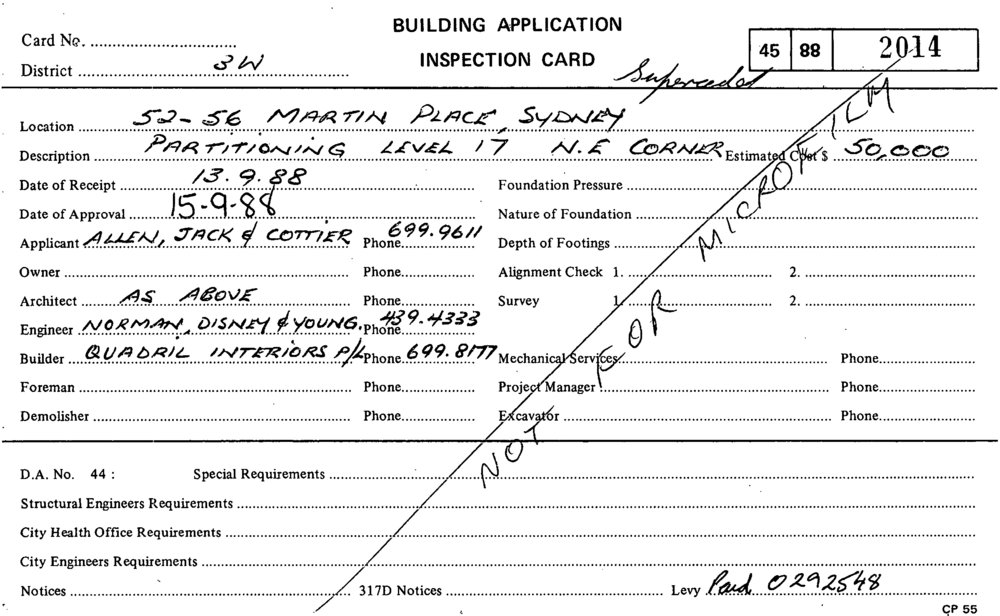 BUILDING APPLICATION
INSPECTION CARD
Card No.
District 3W
45 88 2014
Superceded
Location 52-56 MARTIN PLACE, SYDNEY
Description PARTITIONING LEVEL 17 N.E CORNER Estimated Cost $ 50,000
Date of Receipt 13.9.88 Foundation Pressure
Date of Approval 15-9-88 Nature of Foundation
Applicant ALLEN, JACK & COTTIER Phone 699.9611 Depth of Footings
Owner Phone Alignment Check 1. 2.
Architect AS ABOVE Phone Survey 1. 2.
Engineer NORMAN, DISNEY & YOUNG. Phone 439.4333
Builder QUADRIL INTERIORS P/L Phone 699.8177 Mechanical Services Phone
Foreman Phone Project Manager Phone
Demolisher Phone Excavator Phone
NOT FOR MICROFILM
D.A. No. 44 : Special Requirements
Structural Engineers Requirements
City Health Office Requirements
City Engineers Requirements
Notices 317D Notices Levy Paid 0292548
CP 55